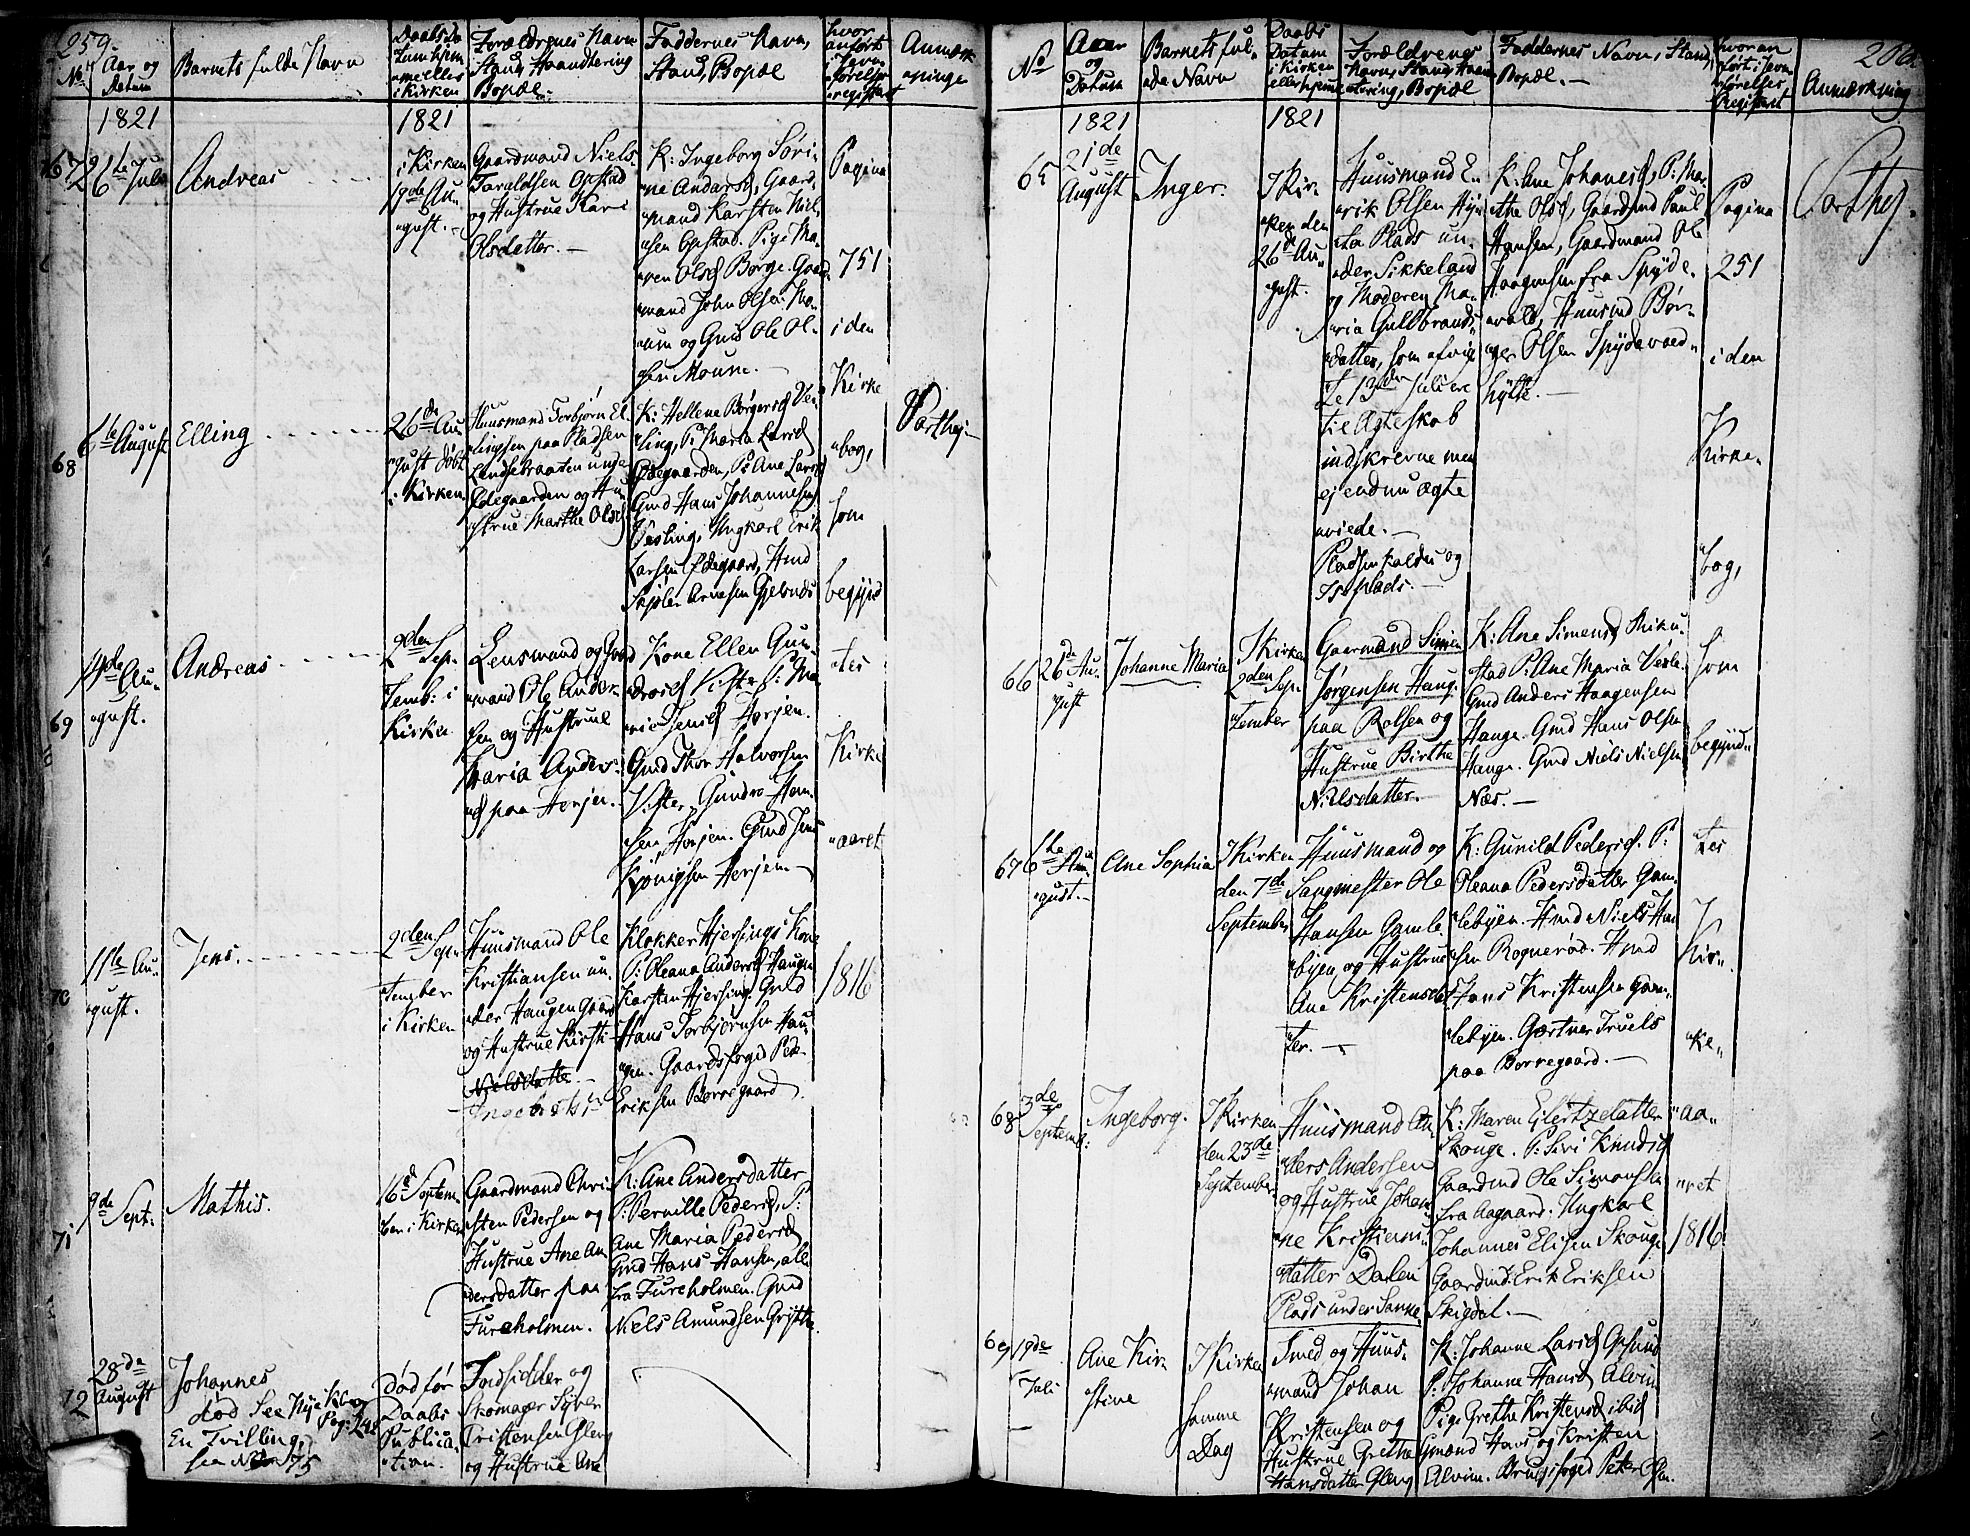 259.
No
Aar og
Datum
Barnets fulde Navn
Daabs Da
tum hjem
me eller
i Kirken
Forældrenes Navn
Stand, Haandtering
Bopæl.
Faddernes Navn,
Stand, Bopæl
hvor
anført
i Jevn
førelses
registret
Anmærk
ninge
1821
1821
67
26de Julii
Andreas
i Kirken
19de Au
gust.
Gaardmand Niels
Taraldsen Opstad
og Hustrue Kari
Olsdatter. —
K: Ingeborg Siri
ne Andersd, Gaard
mand Karsten Niel
sen Opstad. Pige Ma
ren Olsd Borge. Gaard
mand John Olsen
og Gmd Ole Ol
sen Moum. —
Pagina
751
i den
Kirke
bog,
som
begynd
tes
Kirke
aaret
1816
68
6te August
Elling
26de Au
gust døbt
i Kirken
Huusmand Torbjørn El
lingsen paa Pladsen
under
Ødegaarden og Hu
strue Marthe Olsd
K: Hellene Børgersd Ves
ling, P: Maria Larsd
Ødegaarden, P: Ane Larsd
Gmd Hans Johannesen
Vesling, Ungkarl Erik
Larsen Ødegaard, Hmd
Arnesen
Parthej
69
14de Au
gust.
Andreas
2den Sep
temb: i
Kirken
Lensmand og Gaard
mand Ole Ander
sen og Hustrue
Maria Anders
d paa Horjen.
Kone Ellen Gun
drosd Vister P: Ma
rie Jensd Horjen.
Gmd Thor Halvorsen
Vister, Gundro Han
sen Horjen. Gmd Jens
Kønigsen Horjen —
70
11te Au
gust.
Jens.
2den Sep
tember
i Kirken
Huusmand Ole
Kristiansen un
der Haugen Gaard
og Hustrue Kirsti
Nielsdatter
Ingebretsd
Klokker Hjersings Kone
P: Oleana Andersd Haugen
Karsten Hjersing. Gmd
Hans Torbjørnsen Hau
gen. Gaardsfoged Peder
Eriksen Borregaard
71
9de Sept:
Mathis.
16de Septem
ber i Kirken
Gaardmand Chri
sten Pedersen og
Hustrue Ane An
dersdatter paa
Fureholmen.
K: Ane Andersdatter
P: Pernille Pedersd, P:
Ane Maria Pedersd
Gmd Hans Hansen, alle
fra Fureholmen. Gmd
Niels Amundsen
72
28de
August
Johannes
død See Nye Kbog
Pag: 248
En Tvilling,
see No 75
Død før
Daabs
Publica
tion.
Indsidder og
Skomager Syver
Cristensen Gleng
og Hustrue Ane
No
Aar
og
Datum
Barnets ful
de Navn
Daabs
Datum
i Kirken
eller hjemme
Forældrenes
Navn, Stand, Haan
tering, Bopæl
Faddernes Navn, Stand,
Bopæl. —
hvor an
ført i Jevn
førelses
Registret
260.
Anmærkning
1821
1821
65
21de
August
Inger.
I Kir
ken den
26de Au
gust.
Huusmand E
rik Olsen
Plads un
der Sikkeland
og Moderen Ma
ria Gulbrands
datter, som
13de Julii ere
til Ægteskab
indskrevne men
ej endnu ægte
viede. —
Pladsen kaldes og
Isøplads. —
K: Ane Johanesd, P: Ma
the Olsd, Gaardmd Paul
Hansen, Gaardmand Ole
Haagensen fra Spyde
vold, Huusmd Bør
ger Olsen Spydevold
hytte. —
Pagina
251
i den
Kirke
bog,
som
begynd
tes
Kir
ke
aa
ret
1816
Parthej.
66
26de Au
gust
Johanne Maria
I Kirken
2den Sep
tember
Gaarmand Simen
Jørgensen Haug
paa Rolsøen og
Hustrue Birthe
Nielsdatter.
K: Ane Simensd
P: Ane Maria
Gmd Anders Haagensen
Hauge. Gmd Hans Olsen
Hauge. Gmd Niels Nielsen
Næs. —
67
6te Au
gust. —
Ane Sophia
I Kirken
den 7de
September
Huusmand og
Sangmester Ole
Hansen Gamle
byen og Hustrue
Ane Kristensdat
ter. —
K: Gunild Pedersd. P:
Oleana Pedersdatter Gam
lebyen. Hmd Niels Han
sen Rognerød. Hmd
Hans Kristensen Gam
lebyen. Gartner Truels
paa Borregaard. —
68
3de
Septemb:
Ingeborg.
I Kirken
den 23de
September
Huusmand An
ders Andersen
og Hustrue Johan
ne Kristians
datter Dalen
Plads under Sanne
K: Maren Eilertzdatter
Skouge. P: Siri Knudsd
Gaardmd Ole Simonsen
fra Aagaard. Ungkarl
Johannes Elisen Skouge
Gaardmd: Erik Eriksen
Skigdal. —
69
19de
Juli
Ane Kir
stine
I Kirken
samme
Dag
Smed og Huus
mand Johan
Kristensen og
Hustrue Grethe
Hansdatter Gleng
K: Johanne Larsd Opsund
P: Johanne Hansd Alvim
Pige Grethe Kristensd ibid
Gmand Hans og Kristen
Alvim. Brugsfoged Peter